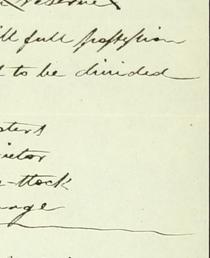 reserve
ll full possession
to be divided
sters
rietor
-ttock